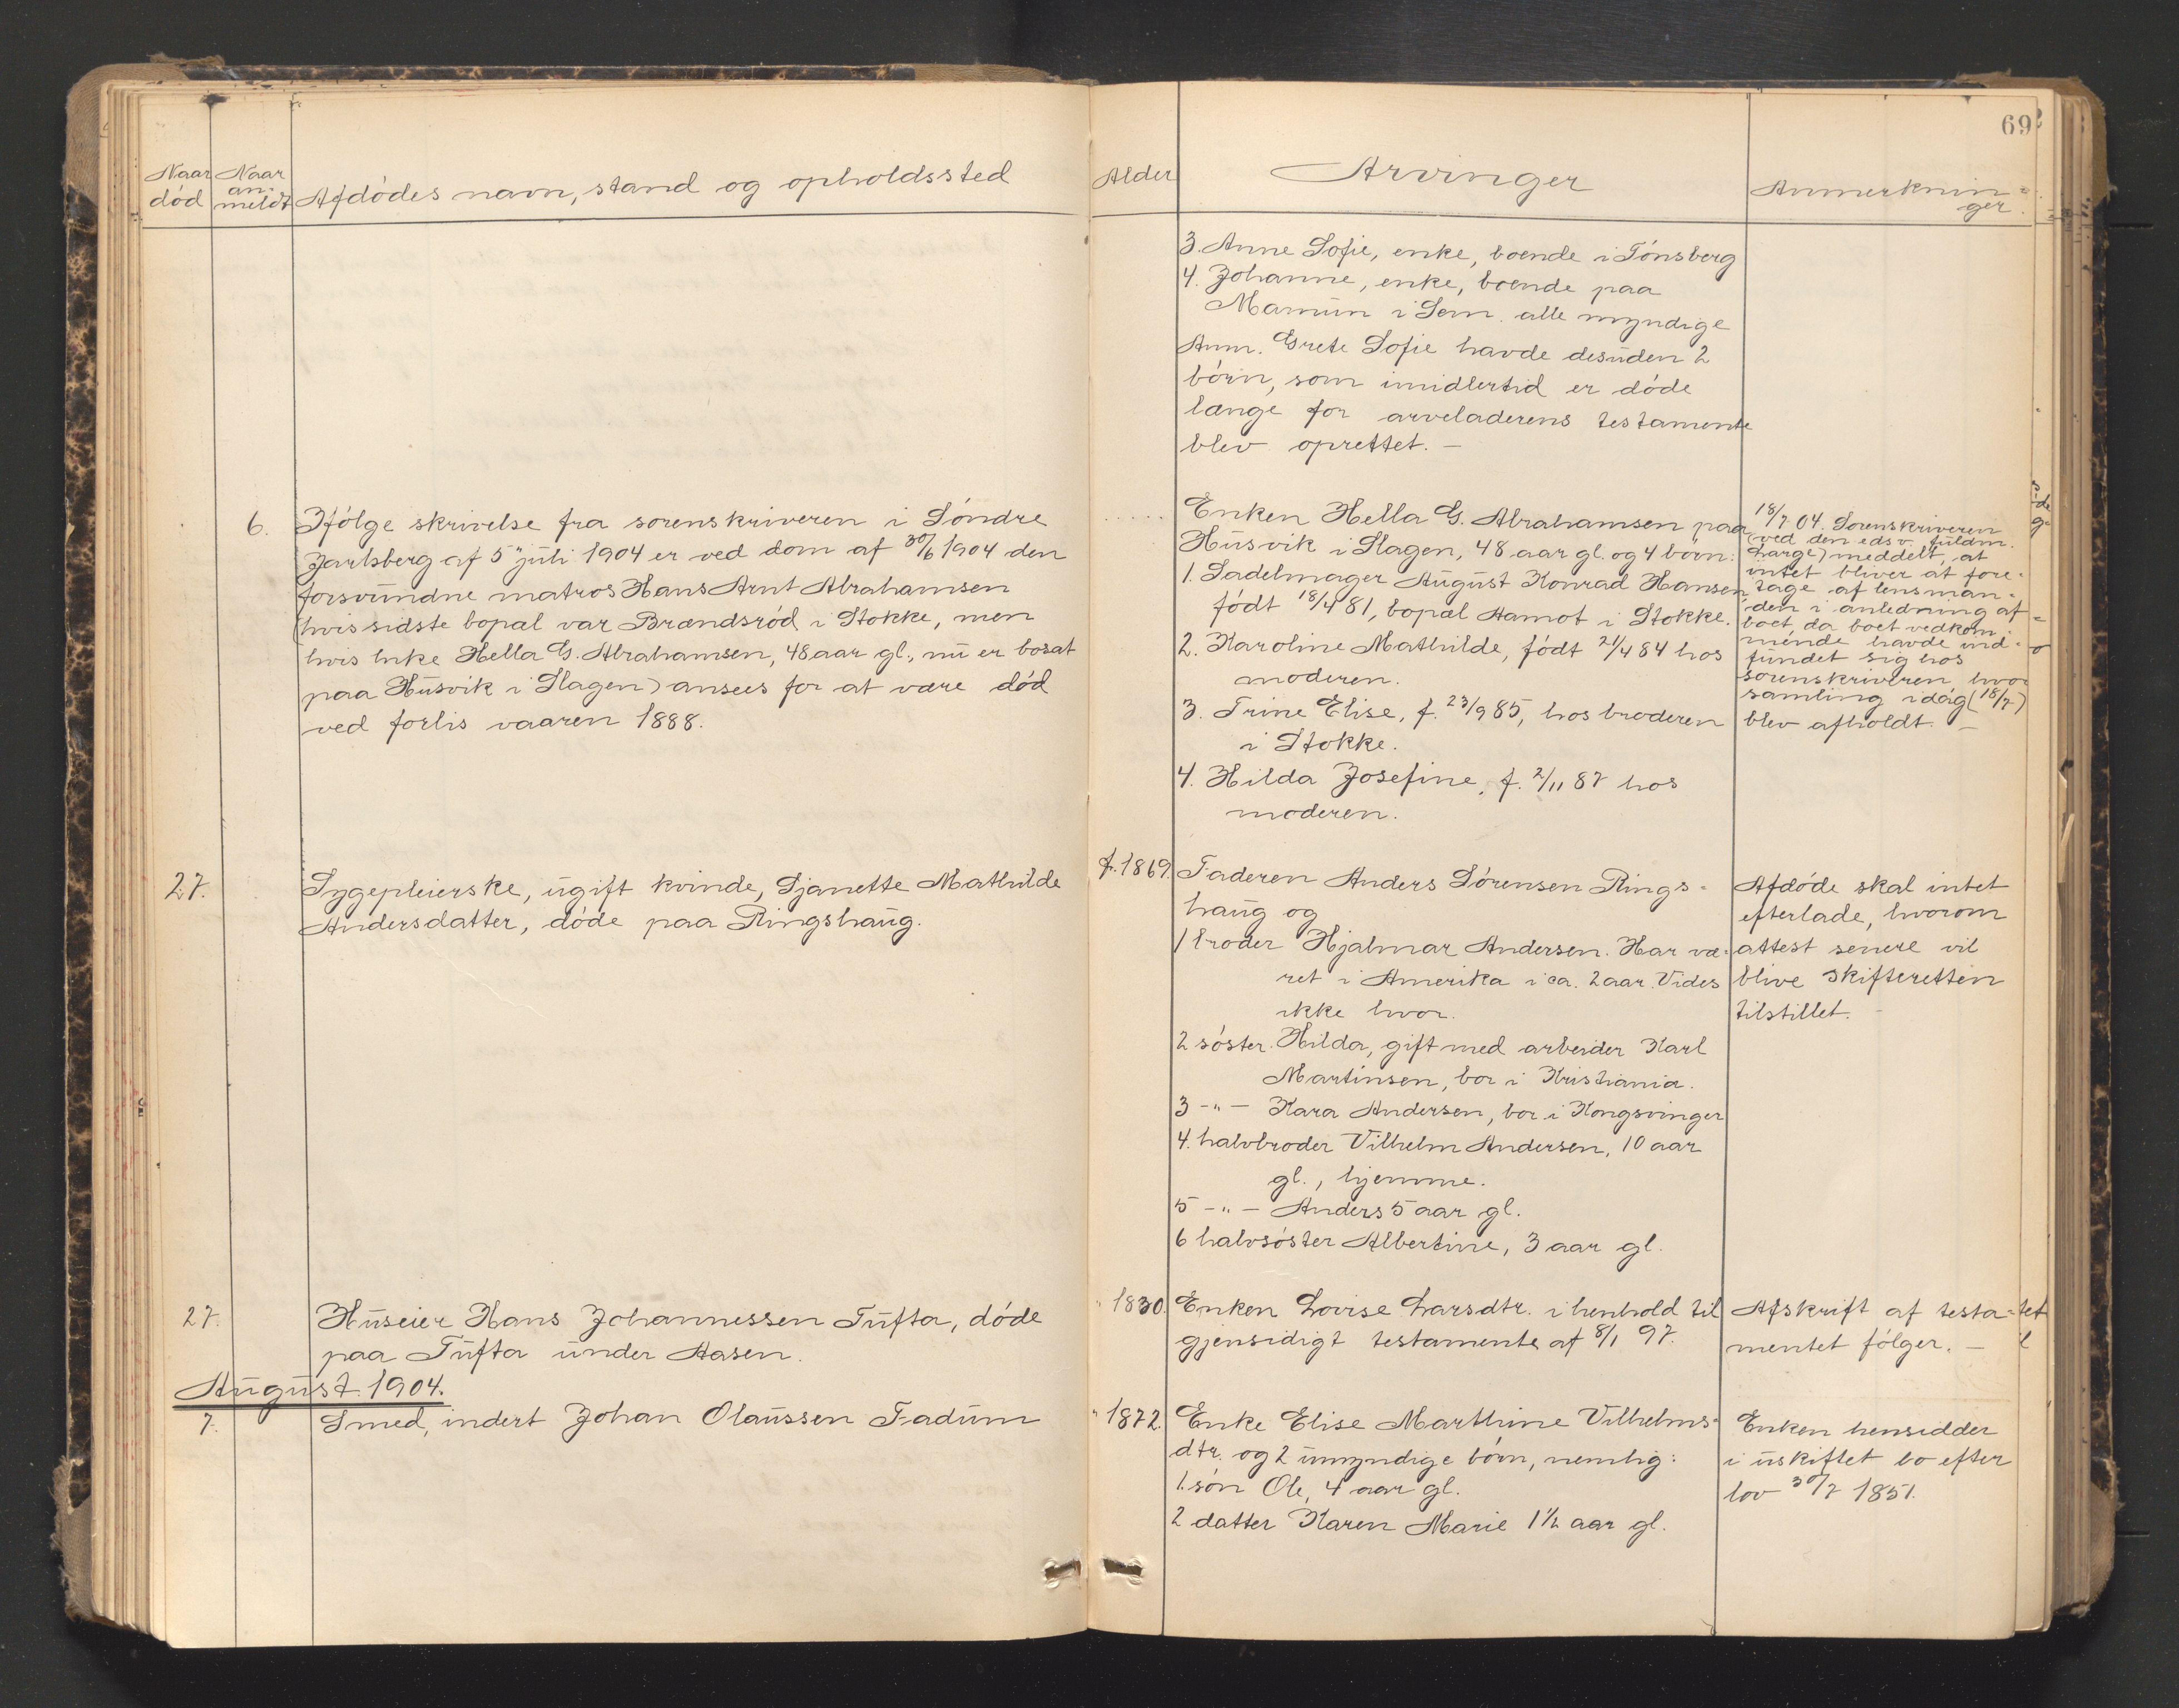 69
Naar død
Naar anmeldt
Afdødes navn, stand og opholdssted
Alder
Arvinger
Anmerkninger
3. Anne Sofie, enke, boende i Tønsberg
4. Johanne, enke, boende paa
Mamün i Sem. alle myndige
Anm. Grete Sofie havde desüden 2
børn, som imidlertid er døde
længe før arveladerens testamente
blev oprettet. —
6.
Ifølge skrivelse fra sorenskriveren i Søndre
Jarlsberg af 5" jüli 1904 er ved dom af 30/6 1904 den
forsvündne matros Hans Arnt Abrahamsen
(hvis sidste bopæl var Brændsrød i Stokke, men
hvis Enke Hella G. Abrahamsen, 48 aar gl., nü er bosat
paa Hüsvik i Slagen) ansees for at være død
ved forlis vaaren 1888.
Enken Hella G. Abrahamsen paa
Hüsvik i Slagen, 48 aar gl. og 4 børn:
1. Sadelmager Aügüst Konrad Hansen
født 18/4 81, bopæl Aamot i Stokke.
2. Karoline Mathilde, født 21/4 84 hos
moderen.
3. Trine Elise, f. 23/9 85, hos broderen
i Stokke.
4. Hilda Josefine, f. 2/11 87 hos
moderen.
18/7 04. Sorenskriveren
(ved den edsv. füldm.
Harge) meddelt, at
intet bliver at fore-
tage af lensman-
den i anledning af
boet, da boet vedkom-
mende havde ind-
fündet sig hos
sorenskriveren, hvor
samling idag (18/7)
blev afholdt. —
27.
Sygepleierske, ügift kvinde, Sjanette Mathilde
Andersdatter, døde paa Ringshaüg.
f. 1869.
Faderen Anders Sørensen Rings-
haüg og
1 broder Hjalmar Andersen. Har væ-
ret i Amerika i ca. 2 aar. Vides
ikke hvor.
2 søster. Hilda, gift med arbeider Karl
Martinsen, bor i Kristiania.
3 -"- Kara Andersen, bor i Kongsvinger
4. halvbroder Vilhelm Andersen, 10 aar
gl., hjemme.
5 -"- Anders 5 aar gl.
6 halvsøster Albertine, 3 aar gl.
Afdøde skal intet
efterlade, hvorom
attest senere vil
blive skifteretten
tilstillet. -
27.
Hüseier Hans Johannessen Tüfta, døde
paa Tüfta ünder Aasen.
" 1830.
Enken Lovise Larsdtr. i henhold til
gjensidigt testamente af 8/1 97.
Afskrift af testa-
mentet følger. —
Aügüst 1904.
7.
Smed, inderst Johan Olaüssen Fadüm
" 1872.
Enke Elise Marthine Vilhelms-
dtr. og 2 ümyndige børn, nemlig:
1. søn Ole, 4 aar gl.
2 datter Karen Marie 1 1/2 aar gl.
Enken hensidder
i üskiftet bo efter
lov 30/7 1851.